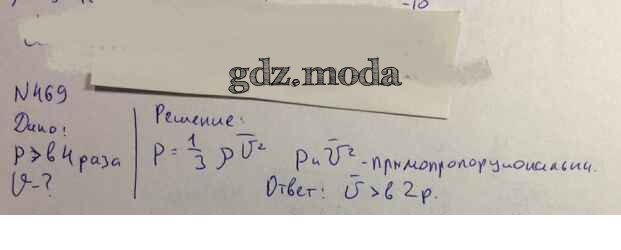 -10
gdz.moda
N469
Дано:
P > в 4 раза
υ - ?
Решение:
P = 1/3 ρ υ̅²   P и υ̅² - прямопропорциональны.
Ответ: υ̅ > в 2 р.